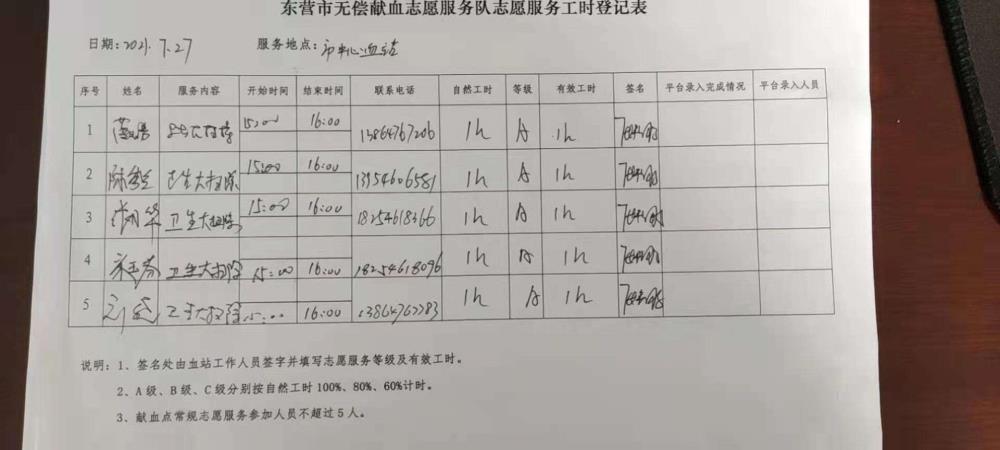 东营市无偿献血志愿服务队志愿服务工时登记表
日期：2021.7.27 服务地点：市中心血站
序号 姓名 服务内容 开始时间 结束时间 联系电话 自然工时 等级 有效工时 签名 平台录入完成情况 平台录入人员
1 卫生大扫除 15:00 16:00 13864767206 1h A 1h
2 卫生大扫除 15:00 16:00 13954606581 1h A 1h
3 卫生大扫除 15:00 16:00 18254618366 1h A 1h
4 卫生大扫除 15:00 16:00 18254618096 1h A 1h
5 卫生大扫除 15:00 16:00 1h A 1h
说明：1、签名处由血站工作人员签字并填写志愿服务等级及有效工时。
2、A级、B级、C级分别按自然工时100%、80%、60%计时。
3、献血点常规志愿服务参加人员不超过5人。